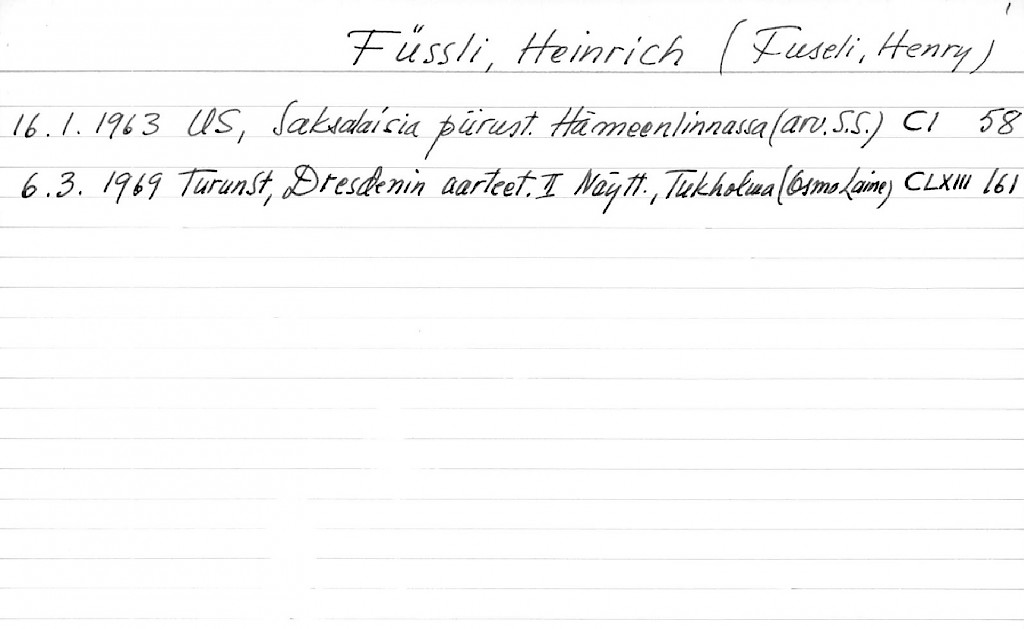 1
Füssli, Heinrich (Fuseli, Henry)
16.1.1963 US, Saksalaisia piirust. Hämeenlinnassa (arv. S.S.) CI 58
6.3.1969 TurunSt, Dresdenin aarteet. II Näytt., Tukholma (Osmo Laine) CLXIII 161